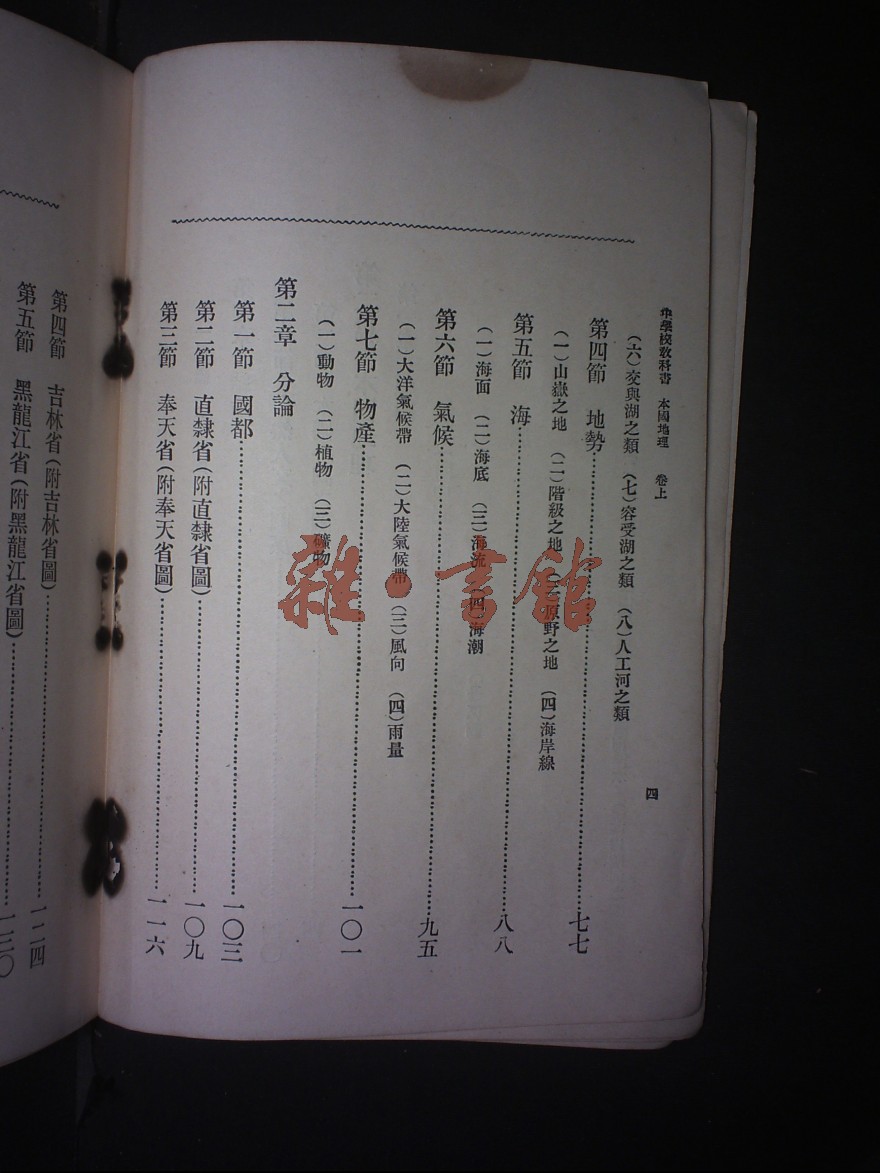 中學校教科書 本國地理 卷上 四
(六)交與湖之類 (七)容受湖之類 (八)人工河之類
第四節 地勢……七七
(一)山嶽之地 (二)階級之地 (三)原野之地 (四)海岸線
第五節 海……八八
(一)海面 (二)海底 (三)海流 (四)海潮
第六節 氣候……九五
(一)大洋氣候帶 (二)大陸氣候帶 (三)風向 (四)雨量
第七節 物產……一〇一
(一)動物 (二)植物 (三)礦物
第二章 分論
第一節 國都……一〇三
第二節 直隸省(附直隸省圖)……一〇九
第三節 奉天省(附奉天省圖)……一一六
第四節 吉林省(附吉林省圖)……一二四
第五節 黑龍江省(附黑龍江省圖)……一三〇
雜·書館